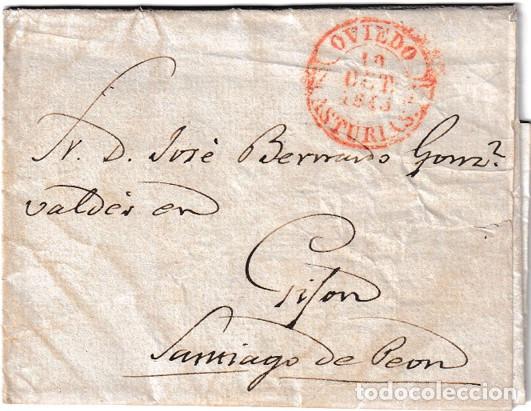 OVIEDO
OCT.
ASTURIAS.
S. D. José Bernardo Gonz.z
valdés en
Gijon
Santiago de Peon
todocoleccion